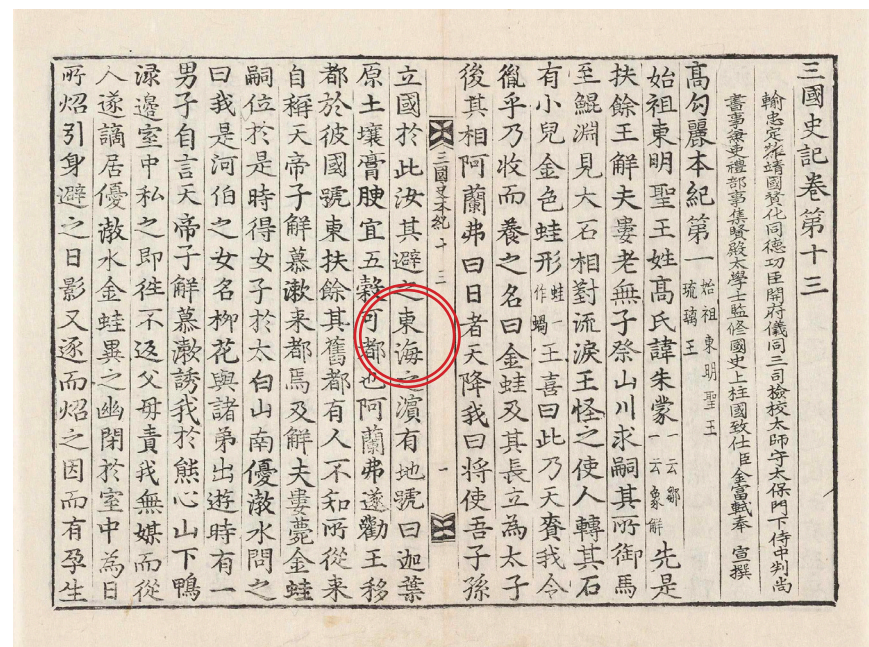 三國史記卷第十三
輸忠定難靖國贊化同德功臣開府儀同三司檢校太師守太保門下侍中判尚
書事兼吏禮部事集賢殿太學士監修國史上柱國致仕臣金富軾奉 宣撰
高勾麗本紀第一 始祖東明聖王 琉璃王
始祖東明聖王姓高氏諱朱蒙 一云鄒 一云象解 先是
扶餘王解夫婁老無子祭山川求嗣其所御馬
至鯤淵見大石相對流淚王怪之使人轉其石
有小兒金色蛙形 蛙一作蝸 王喜曰此乃天賚我令
胤乎乃收而養之名曰金蛙及其長立為太子
後其相阿蘭弗曰日者天降我曰将使吾子孫
三國史本紀十三 一
立國於此汝其避之東海之濱有地號曰迦葉
原土壤膏腴宜五穀可都也阿蘭弗遂勸王移
都於彼國號東扶餘其舊都有人不知所從来
自稱天帝子解慕漱来都焉及解夫婁薨金蛙
嗣位於是時得女子於太白山南優渤水問之
曰我是河伯之女名柳花與諸弟出遊時有一
男子自言天帝子解慕漱誘我於熊心山下鴨
淥邊室中私之即徃不返父母責我無媒而從
人遂謫居優渤水金蛙異之幽閉於室中為日
所炤引身避之日影又逐而炤之因而有孕生